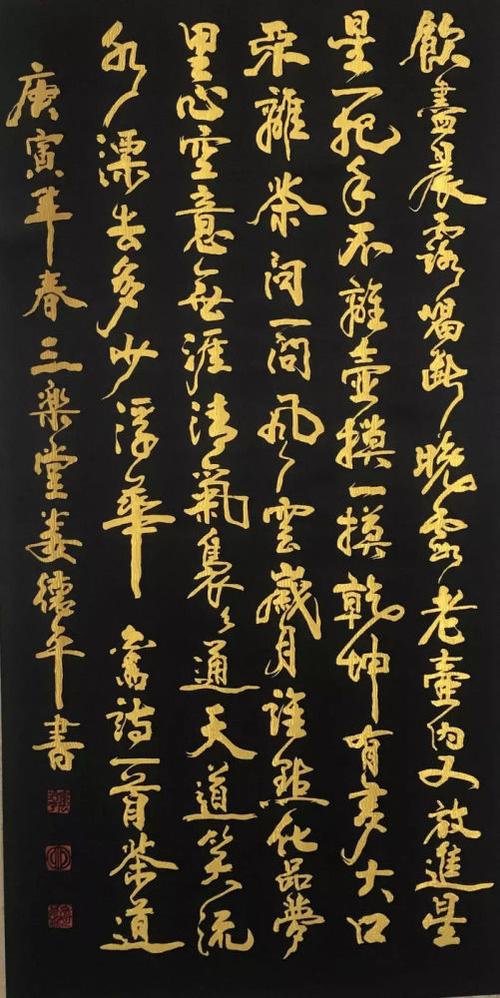 飲盡晨露喝斷晚霞老壺内又放進星
星一把手不離壺摸一摸乾坤有多大口
不離茶問一問風雲歲月誰點化品夢
里心空意無涯清氣裊々通天道笑流
水漂去多少浮華 舊詩一首茶道
庚寅年春三楽堂婁德平書